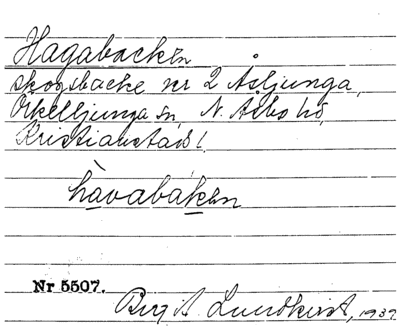 Hagabacken
skogsbacke nr 2 Åsljunga,
Örkelljunga sn, N. Åsbo hd,
Kristianstads l.
hàvabákən
Nr 5507.
Birgit Lundkvist, 1937